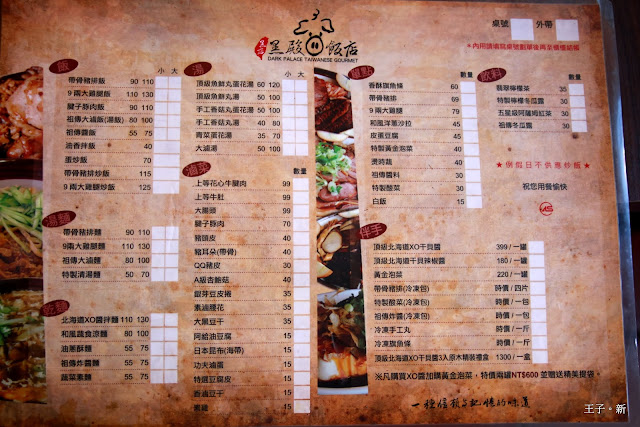 黑殿飯店
DARK PALACE TAIWANESE GOURMET
桌號
外帶
*內用請填寫桌號劃單後再至櫃檯結帳
飯 小 大
帶骨豬排飯 90 110
9兩大雞腿飯 110 130
腱子豚肉飯 90 110
祖傳大滷飯(湯飯) 80 100
祖傳醬飯 55 75
油香拌飯 40
蛋炒飯 60 115
帶骨豬排炒飯 115
9兩大雞腿炒飯 135
湯麵 小 大
帶骨豬排麵 90 110
9兩大雞腿麵 110 130
祖傳大滷麵 80 100
特製清湯麵 50 70
乾麵
北海道XO醬拌麵 110 130
和風蔬食涼麵 80 100
油蔥酥麵 55 75
祖傳炸醬麵 55 75
蔬菜素麵 55 75
湯 小 大
頂級魚鮮丸蛋花湯 60 120
頂級魚鮮丸湯 50 100
手工香菇丸蛋花湯 50 100
手工香菇丸湯 40 80
青菜蛋花湯 35 70
大滷湯 50 100
滷菜 數量
上等花心牛腱肉 99
上等牛肚 99
大腸頭 99
腱子豚肉 50
豬頭皮 40
豬耳朵(帶骨) 40
QQ豬皮 30
A級杏鮑菇 35
鮮芽豆皮捲 35
素滷腰花 35
大黑豆干 35
阿給油豆腐 15
日本昆布(海帶) 15
功夫滷蛋 15
特選豆腐皮 15
香滷豆干 15
素雞 15
數量
香酥旗魚條 60
帶骨豬排 69
9兩大雞腿 79
和風洋蔥沙拉 45
皮蛋豆腐 45
特製黃金泡菜 45
燙時蔬 40
祖傳醬料 30
特製酸菜 30
白飯 15
飲料 數量
翡翠檸檬茶 35
特製檸檬冬瓜露 35
五星級阿薩姆紅茶 30
祖傳冬瓜露 30
★例假日不供應炒飯★
祝您用餐愉快
伴手 數量
頂級北海道XO干貝醬 399/一罐
頂級北海道干貝辣椒醬 180/一罐
黃金泡菜 220/一罐
帶骨豬排(冷凍包) 時價/四片
特製酸菜(冷凍包) 時價/一包
祖傳炸醬(冷凍包) 時價/一包
冷凍手工丸 時價/一斤
冷凍旗魚條 時價/一斤
頂級北海道XO干貝醬3入原木精裝禮盒 1300/一盒
※凡購買XO醬加購黃金泡菜,特價兩罐NT$600 並贈送精美提袋。
一種信賴與記憶的味道
王子。新